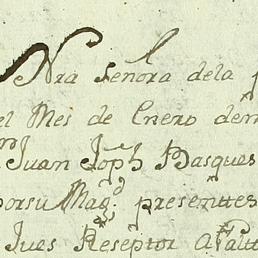 Nra señora dela p
el Mes de Enero dem
Juan Joph Basques
porsu Magd. presenttes
Jues Reseptor afalt